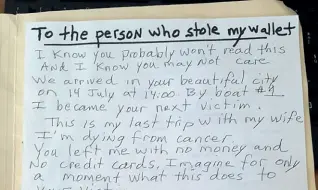 To the person who stole my wallet
I know you probably won't read this
And I know you may not care
We arrived in your beautiful city
on 14 July at 14:00 By boat #4
I became your next victim.
This is my last trip with my wife
I'm dying from cancer
You left me with no money and
No credit cards. Imagine for only
a moment what this does to